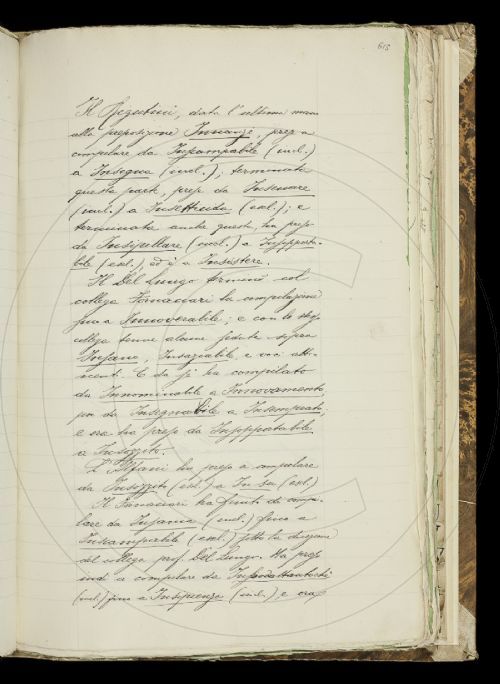 615
Il Rigutini, data l'ultima mano
alla preposizione Innanzi, prese a
compilare da Inscampabile (incl.)
a Insegna (incl.); terminata
questa parte, prese da Insenare
(incl.) a Insettuda (escl.); e
terminata anche questa, ha preso
da Insipillare (incl.) a Insopporta-
bile (escl.) ed è a Insistere.
Il Del Lungo terminò col
collega Fornaciari la compilazione
fino a Innoverabile; e con lo stesso
collega tenne alcune sedute sopra
Insano, Insaziabile e voci atti-
nenti. E da sé ha compilato
da Innominabile a Innovamento,
poi da Insegnabile a Insemprato;
e ora ha preso da Insopportabile
a Insozzito.
L'Alfani ha preso a compilare
da Insozzito (escl.) a In su (escl.)
Il Fornaciari ha finito di compi-
lare da Insania (incl.) fino a
Inscampabile (escl.) sotto la direzione
del collega prof. Del Lungo. Ha pros
indi a compilare da
(incl.) fino a Insipienza (incl.), e ora